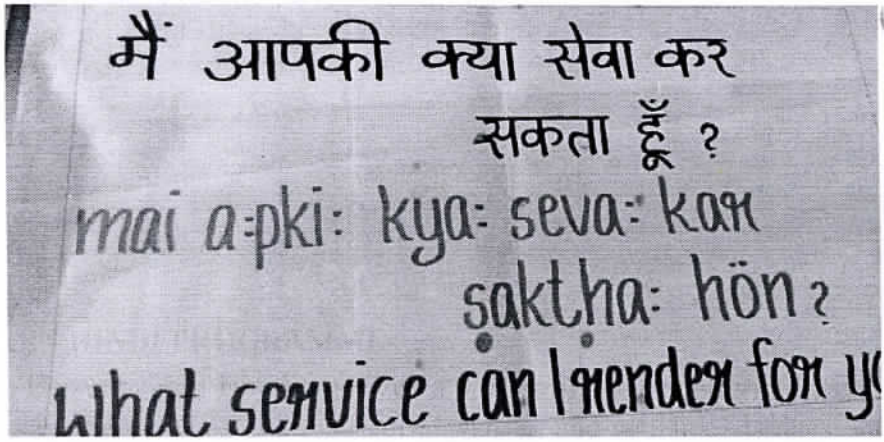 मैं आपकी क्या सेवा कर
सकता हूँ ?
mai a:pki: kya: seva: kar
saktha: hön ?
What service can I render for